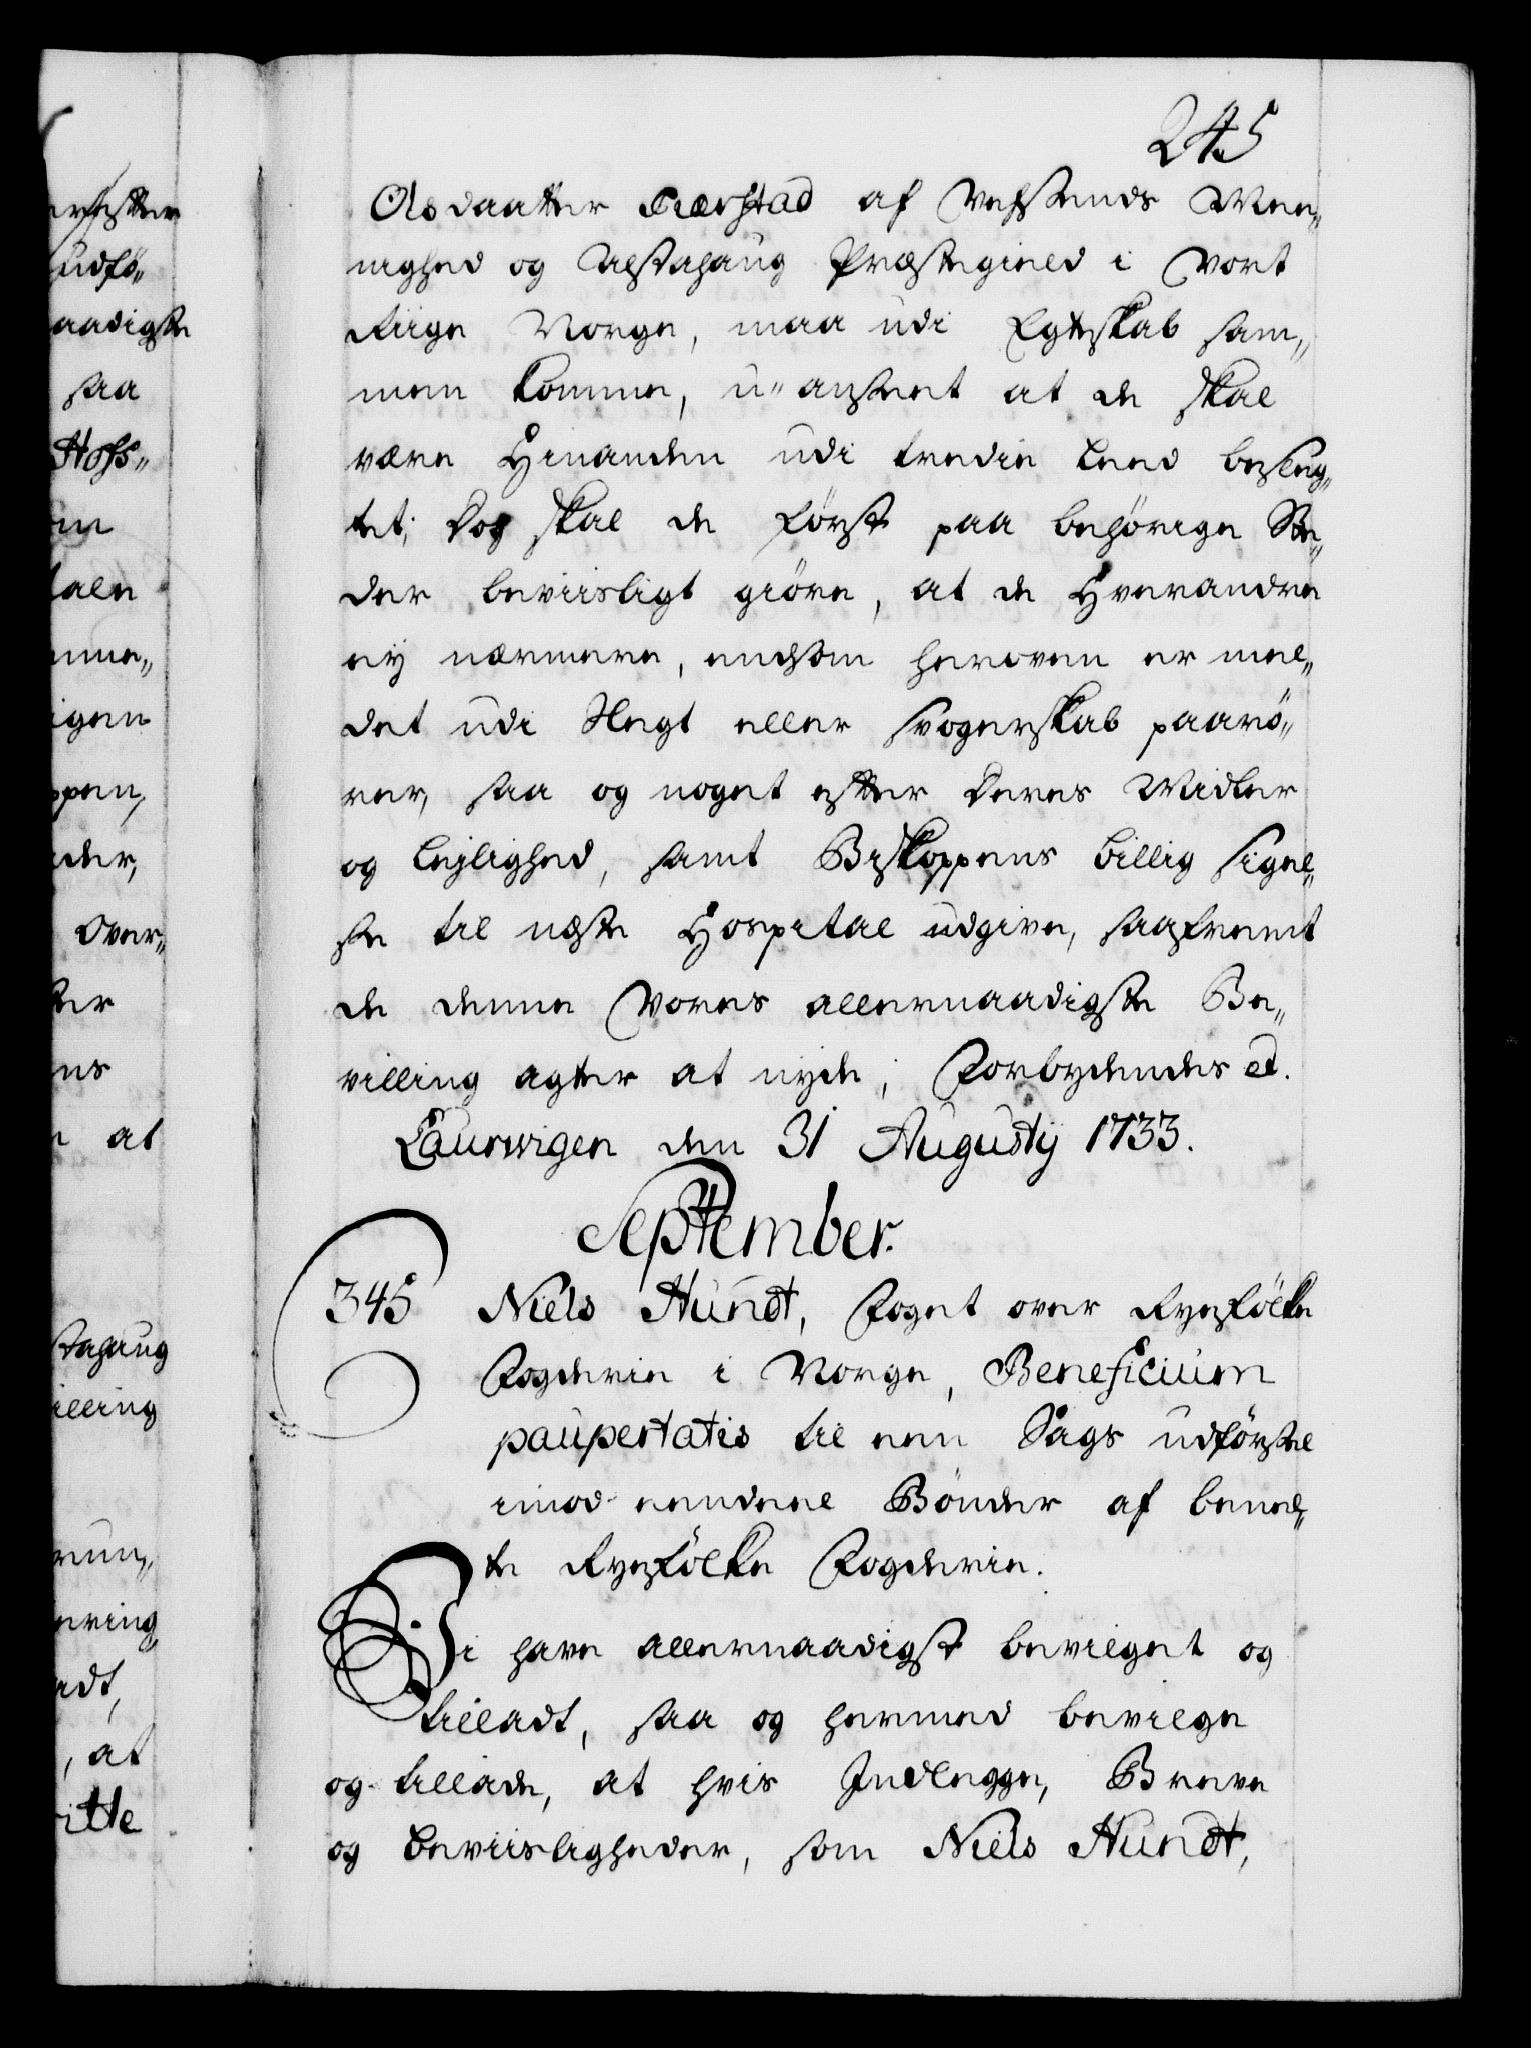 245
Olsdaatter Kierstad af Vefsends Mee„
nighed og Alstahaug Præstegield i Vort
Riige Norge, maa udi Egteskab sam„
men komme, u„anseet at de skal
være Hinanden udi tredie Leed besleg„
tet; Dog skal de først paa behørige Stæ„
der beviisligt giøre, at de Hverandre
eij nærmere, endsom heroven er mel„
det udi Slegt eller Svogerskab paarø„
rer, saa og noget efter Deres Midler
og Lejlighed, samt Biskoppens billig Sigel„
se til næste Hospital udgive, saafremt
de denne Vores allernaadigste Be„
villing agter at nyde; Forbydendes et.
Laurwigen den 31 Augustij 1733.
September.
345 Niels Hundt, Foget over Ryefölke
Fogderie i Norge, Beneficium
paupertatis til een Sags udførsel
imod eendeel Bönder af bemel„
te Ryefölke Fogderie.
Vi have allernaadigst bevilget og
tilladt, saa og hermed bevilge
og tillade, at hvis Indlegge, Breve
og beviisligheder, som Niels Hundt,
erefter
udfö„
aadigste
saa
Hofs„
om
tale
mme„
igen
ppen,
der,
Over„
ter
ns
at
stahaug
illing
run„
ering
adt,
, at
itte